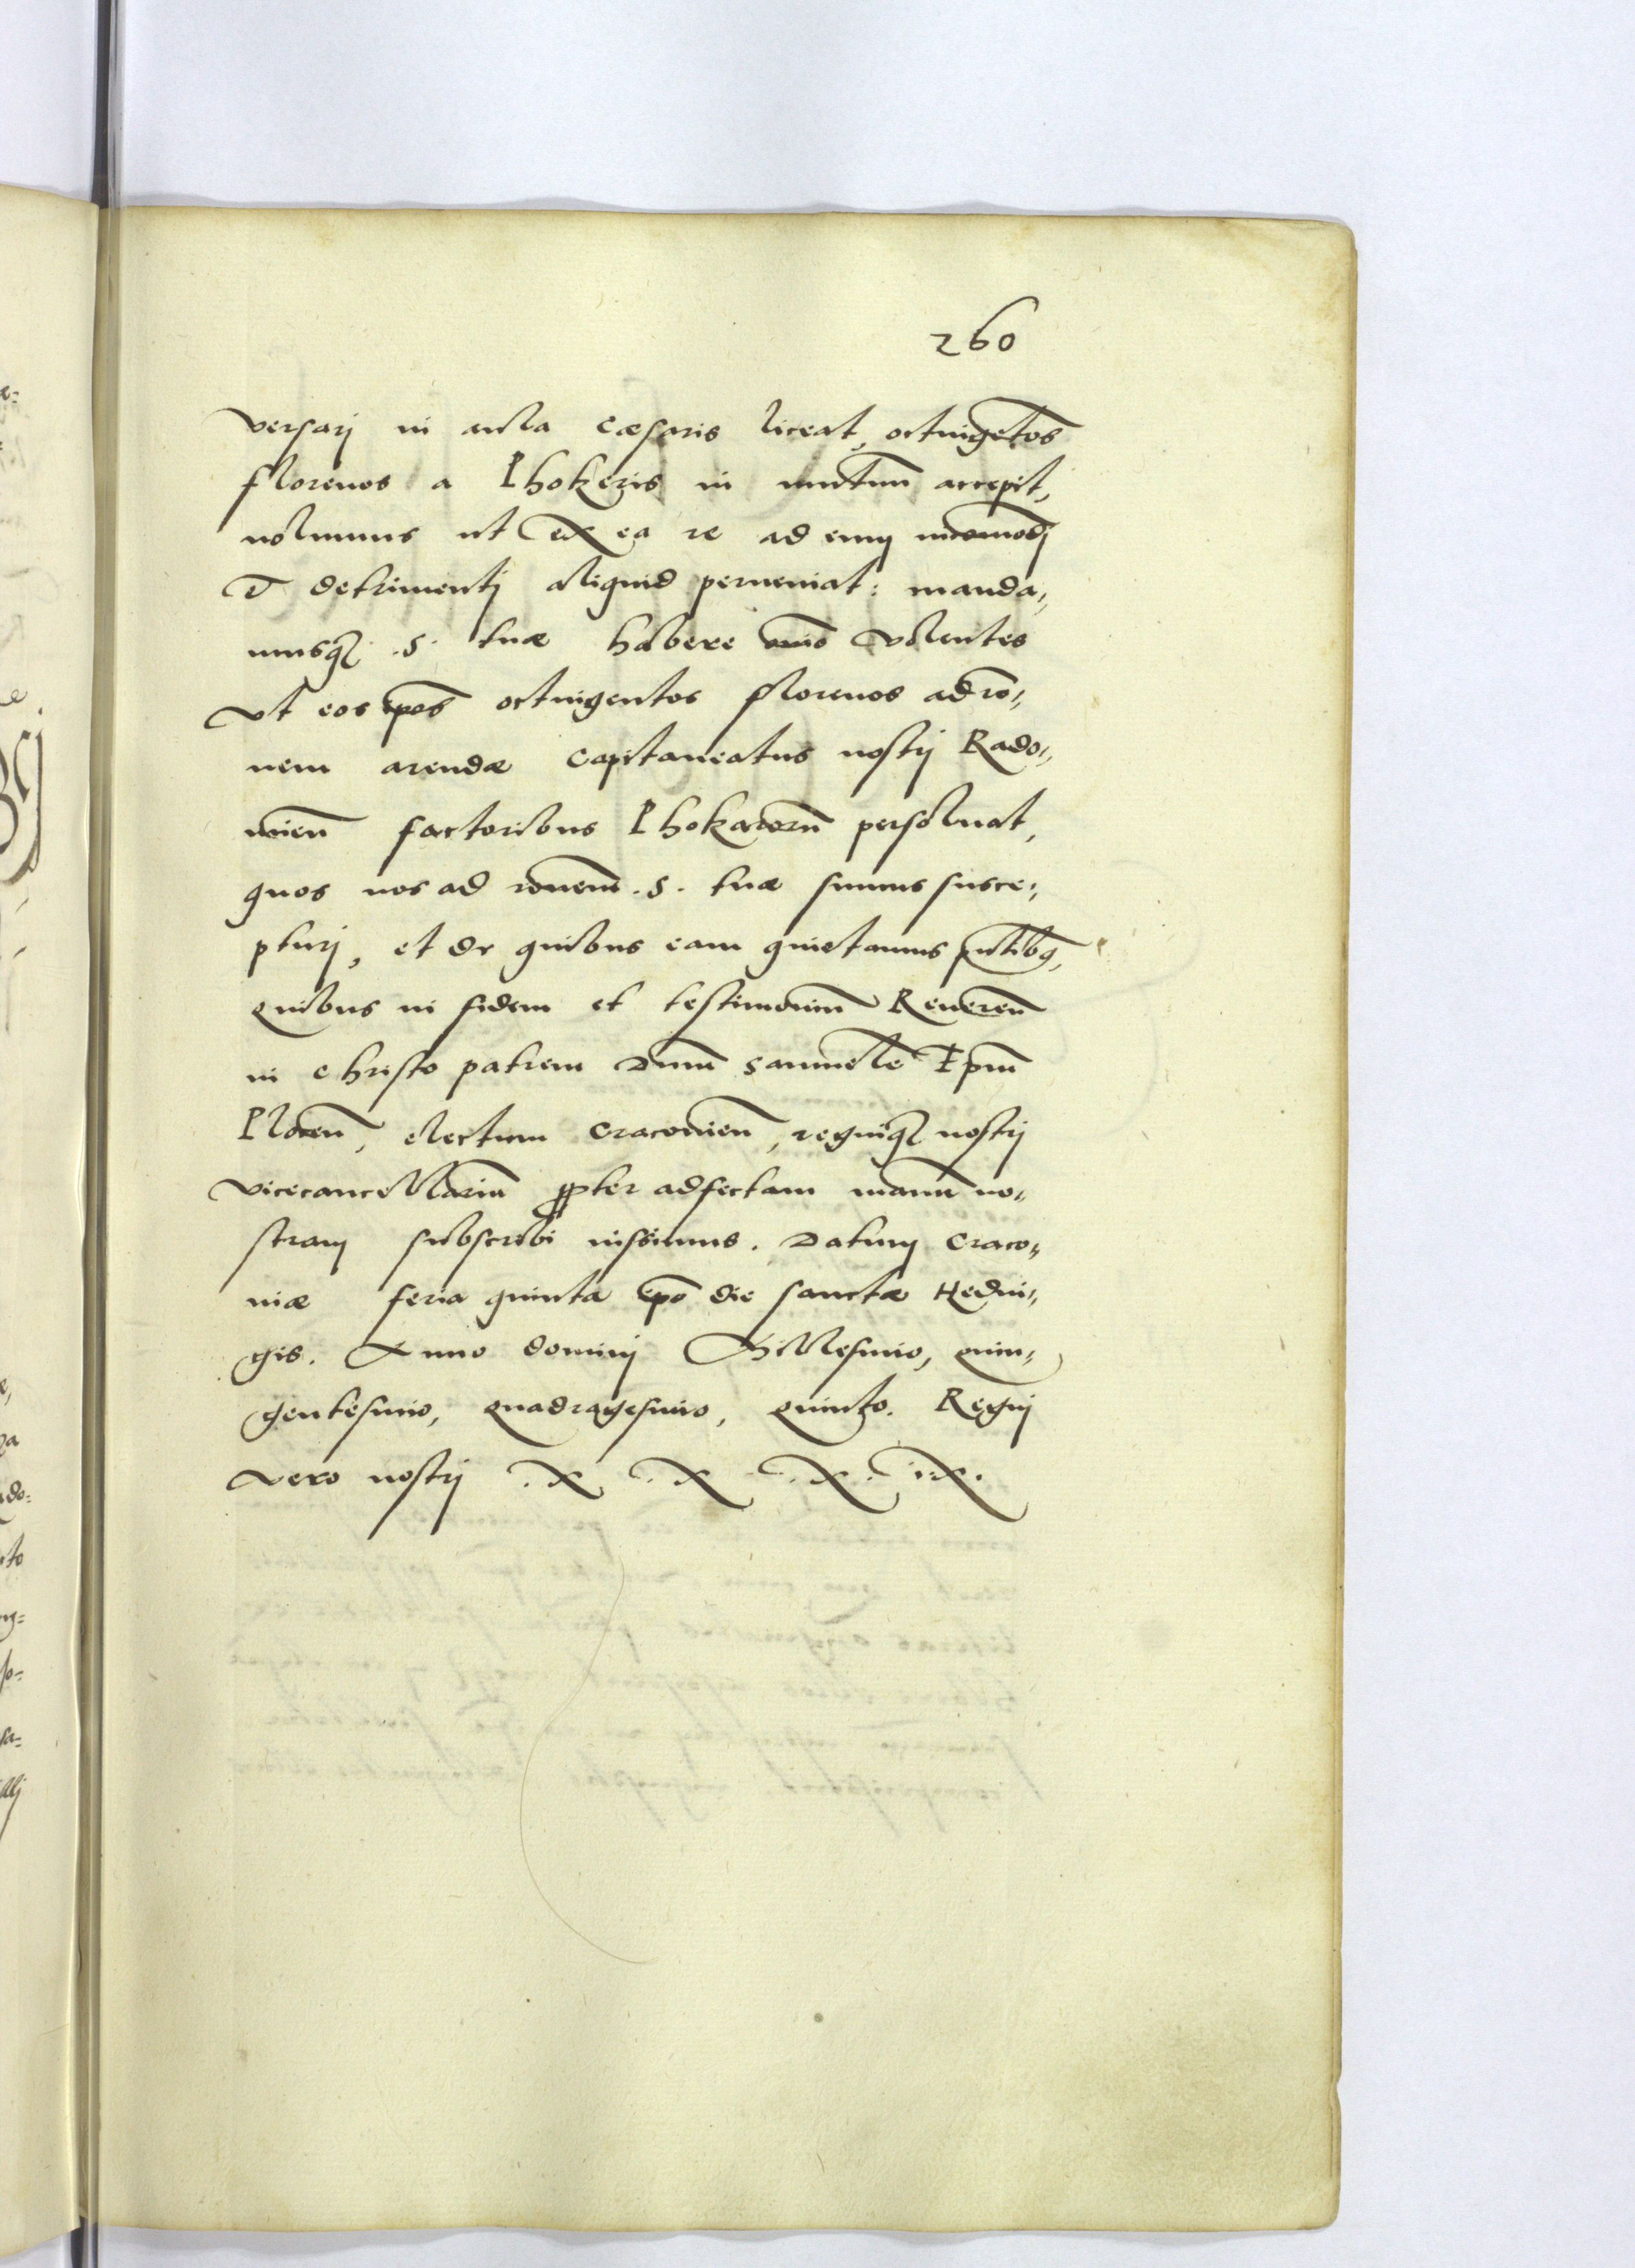 260
versarj in aula cæsaris liceat, octuige͂tos
florenos a Phokeris in mutuu͂ accepit,
nolumus ut ex ea re ad eum incomodj
et detrimentj aliquid perueniat: manda,,
musq3 .S. tuæ habere o͞mio volentes
vt eos ip͞os octuigentos florenos ad ro͞,,
nem arendæ Capitaneatus nostrj Rado,,
mien͞ factoribus Phokaroru͂ persoluat,
quos nos ad ro͞nem .S. tuæ sumus susce,,
pturj, et de quibus eam quietamus pn͞tib9,
quibus in fidem et testimoniu͂ Reueren͞
in Christo patrem Dn͞um Samuele͂ Ep͞um
Plocen͞, electum Cracouien͞, regniq3 nostrj
vicecancellariu͂ p͞pter adfectam manu͂ no,,
stram subscribi iussimus. Datum Craco,,
uiæ feria quinta ip͞o die sanctæ Hedui,,
gis. Anno dominj Millesimo, quin,,
gentesimo, quadragesimo, quinto. Regnj
vero nostrj .X .X .X. IX.